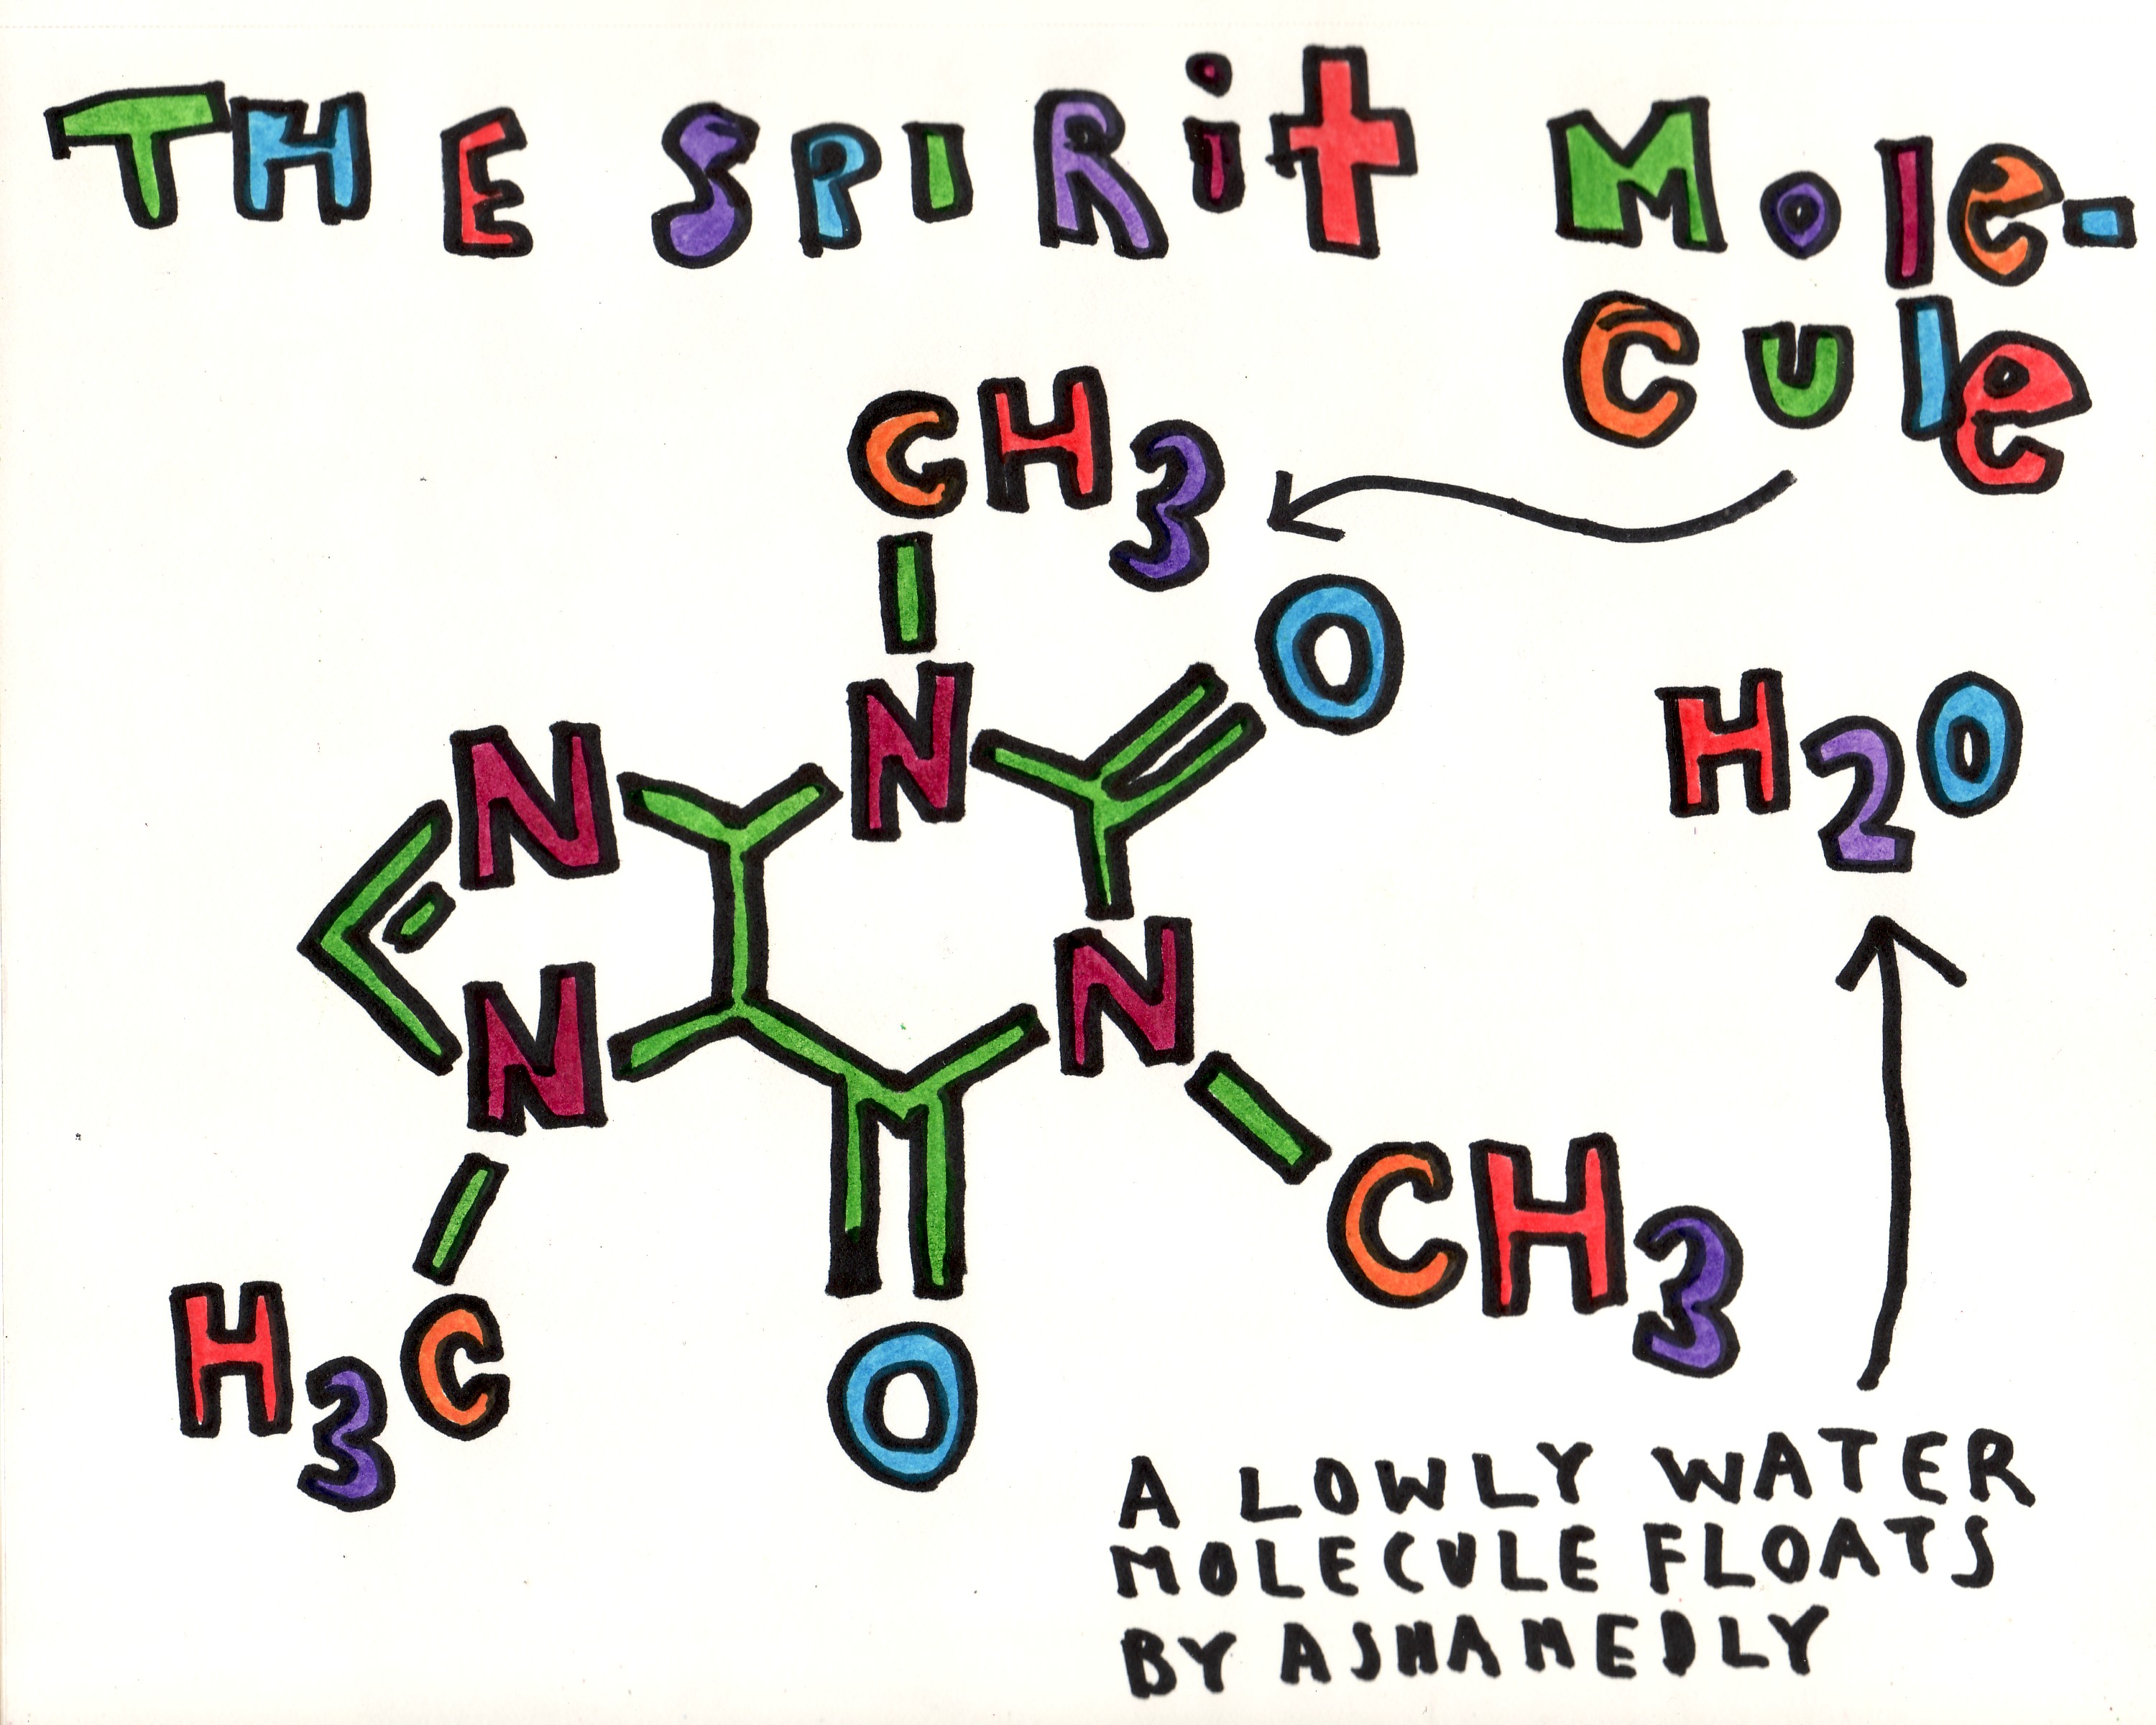 THE SPIRit Mole-
Cule
CH3
O
N
N
H2O
N
N
CH3
H3C
O
A LOWLY WATER
MOLECULE FLOATS
BY ASHAMEDLY